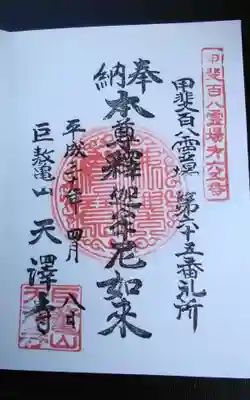 甲斐百八霊場
甲斐百八霊場 第六十五番札所
奉納
本尊釋迦牟尼如来
平成三十年 四月 八日
巨鼇山 天澤寺